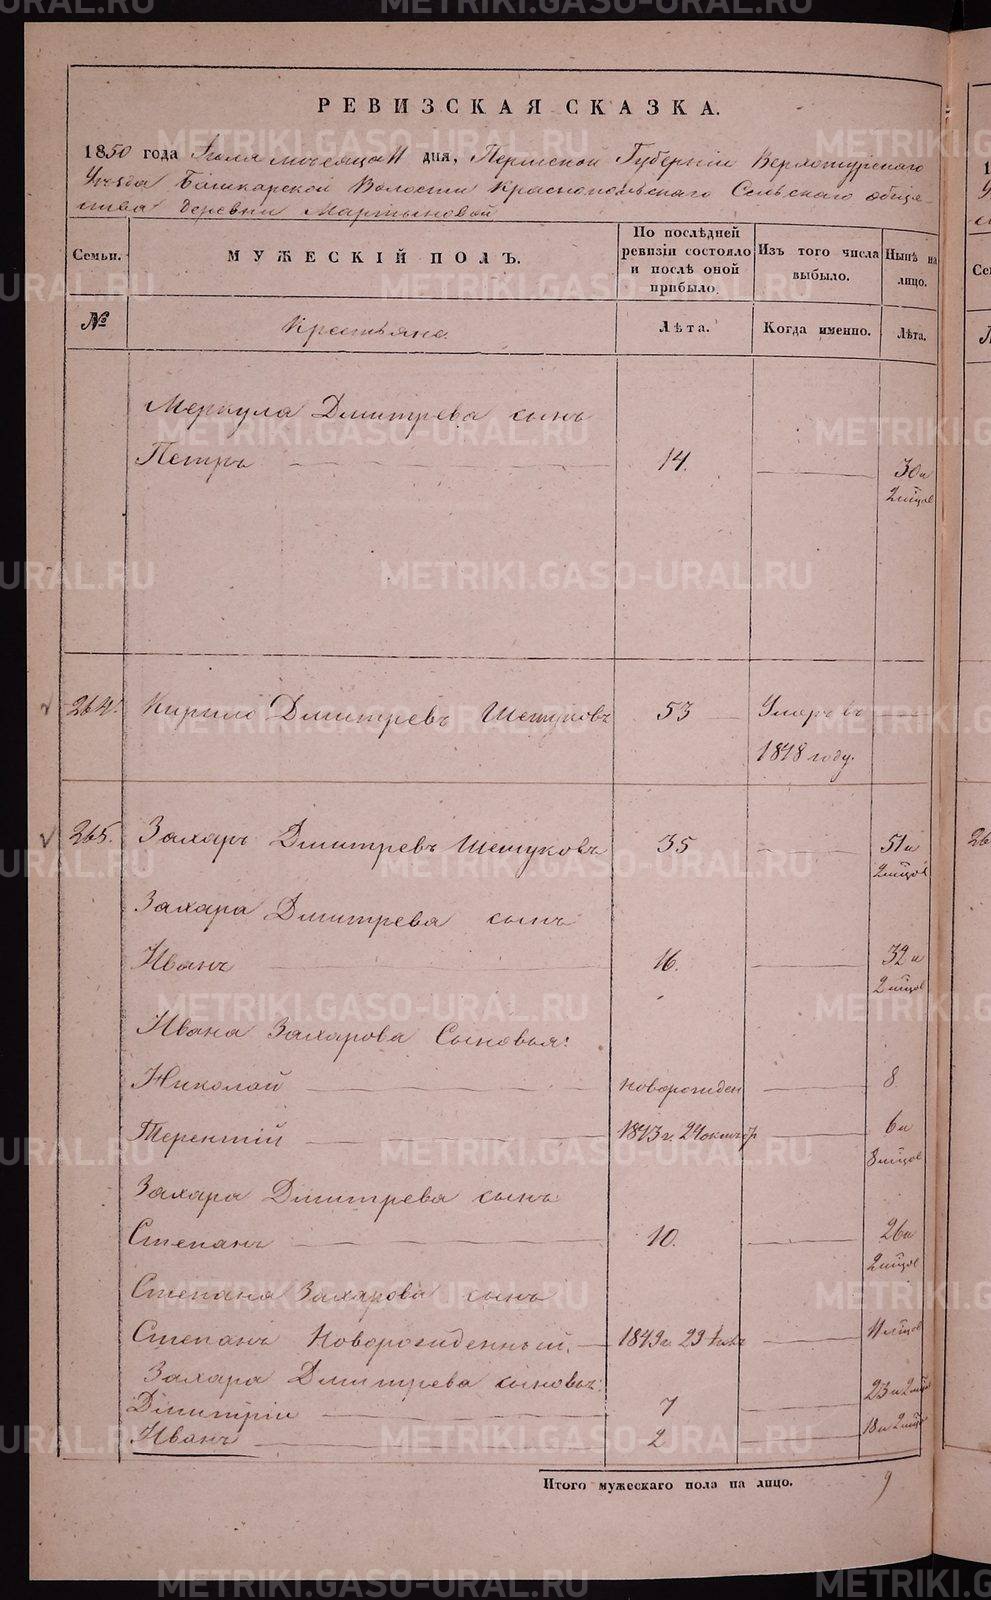 РЕВИЗСКАЯ СКАЗКА.
1850 года Июля месяца 11 дня, Пермской Губерніи Верхотурскаго
Уѣзда Башкарской Волости Краснопольскаго Сельскаго обще-
ства деревни Мартыновой
Семьи. МУЖЕСКІЙ ПОЛЪ. По послѣдней ревизіи состояло и послѣ оной прибыло. Изъ того числа выбыло. Нынѣ на лицо.
№ Крестьяне. Лѣта. Когда именно. Лѣта.
Меркула Дмитрева сынъ
Петръ 14. 30 и
2 мѣцов
264. Кирило Дмитревъ Шешуковъ 53 Умеръ въ
1848 году.
265. Захаръ Дмитревъ Шешуковъ 35 51 и
2 мѣцов
Захара Дмитрева сынъ
Иванъ 16. 32 и
2 мѣцов
Ивана Захарова Сыновья:
Николай новорожден 8
Терентій 1843 г. 24 октябр 6 и
8 мѣцов
Захара Дмитрева сынъ
Степанъ 10. 26 и
2 мѣцов
Степана Захарова сынъ
Степанъ Новорожденный. 1849 г. 29 11 мѣцов
Захара Дмитрева сыновья:
Дмитрій 7 23 и 2 мѣцов
Иванъ 2 18 и 2 мѣцов
Итого мужескаго пола на лицо. 9
METRIKI.GASO-URAL.RU